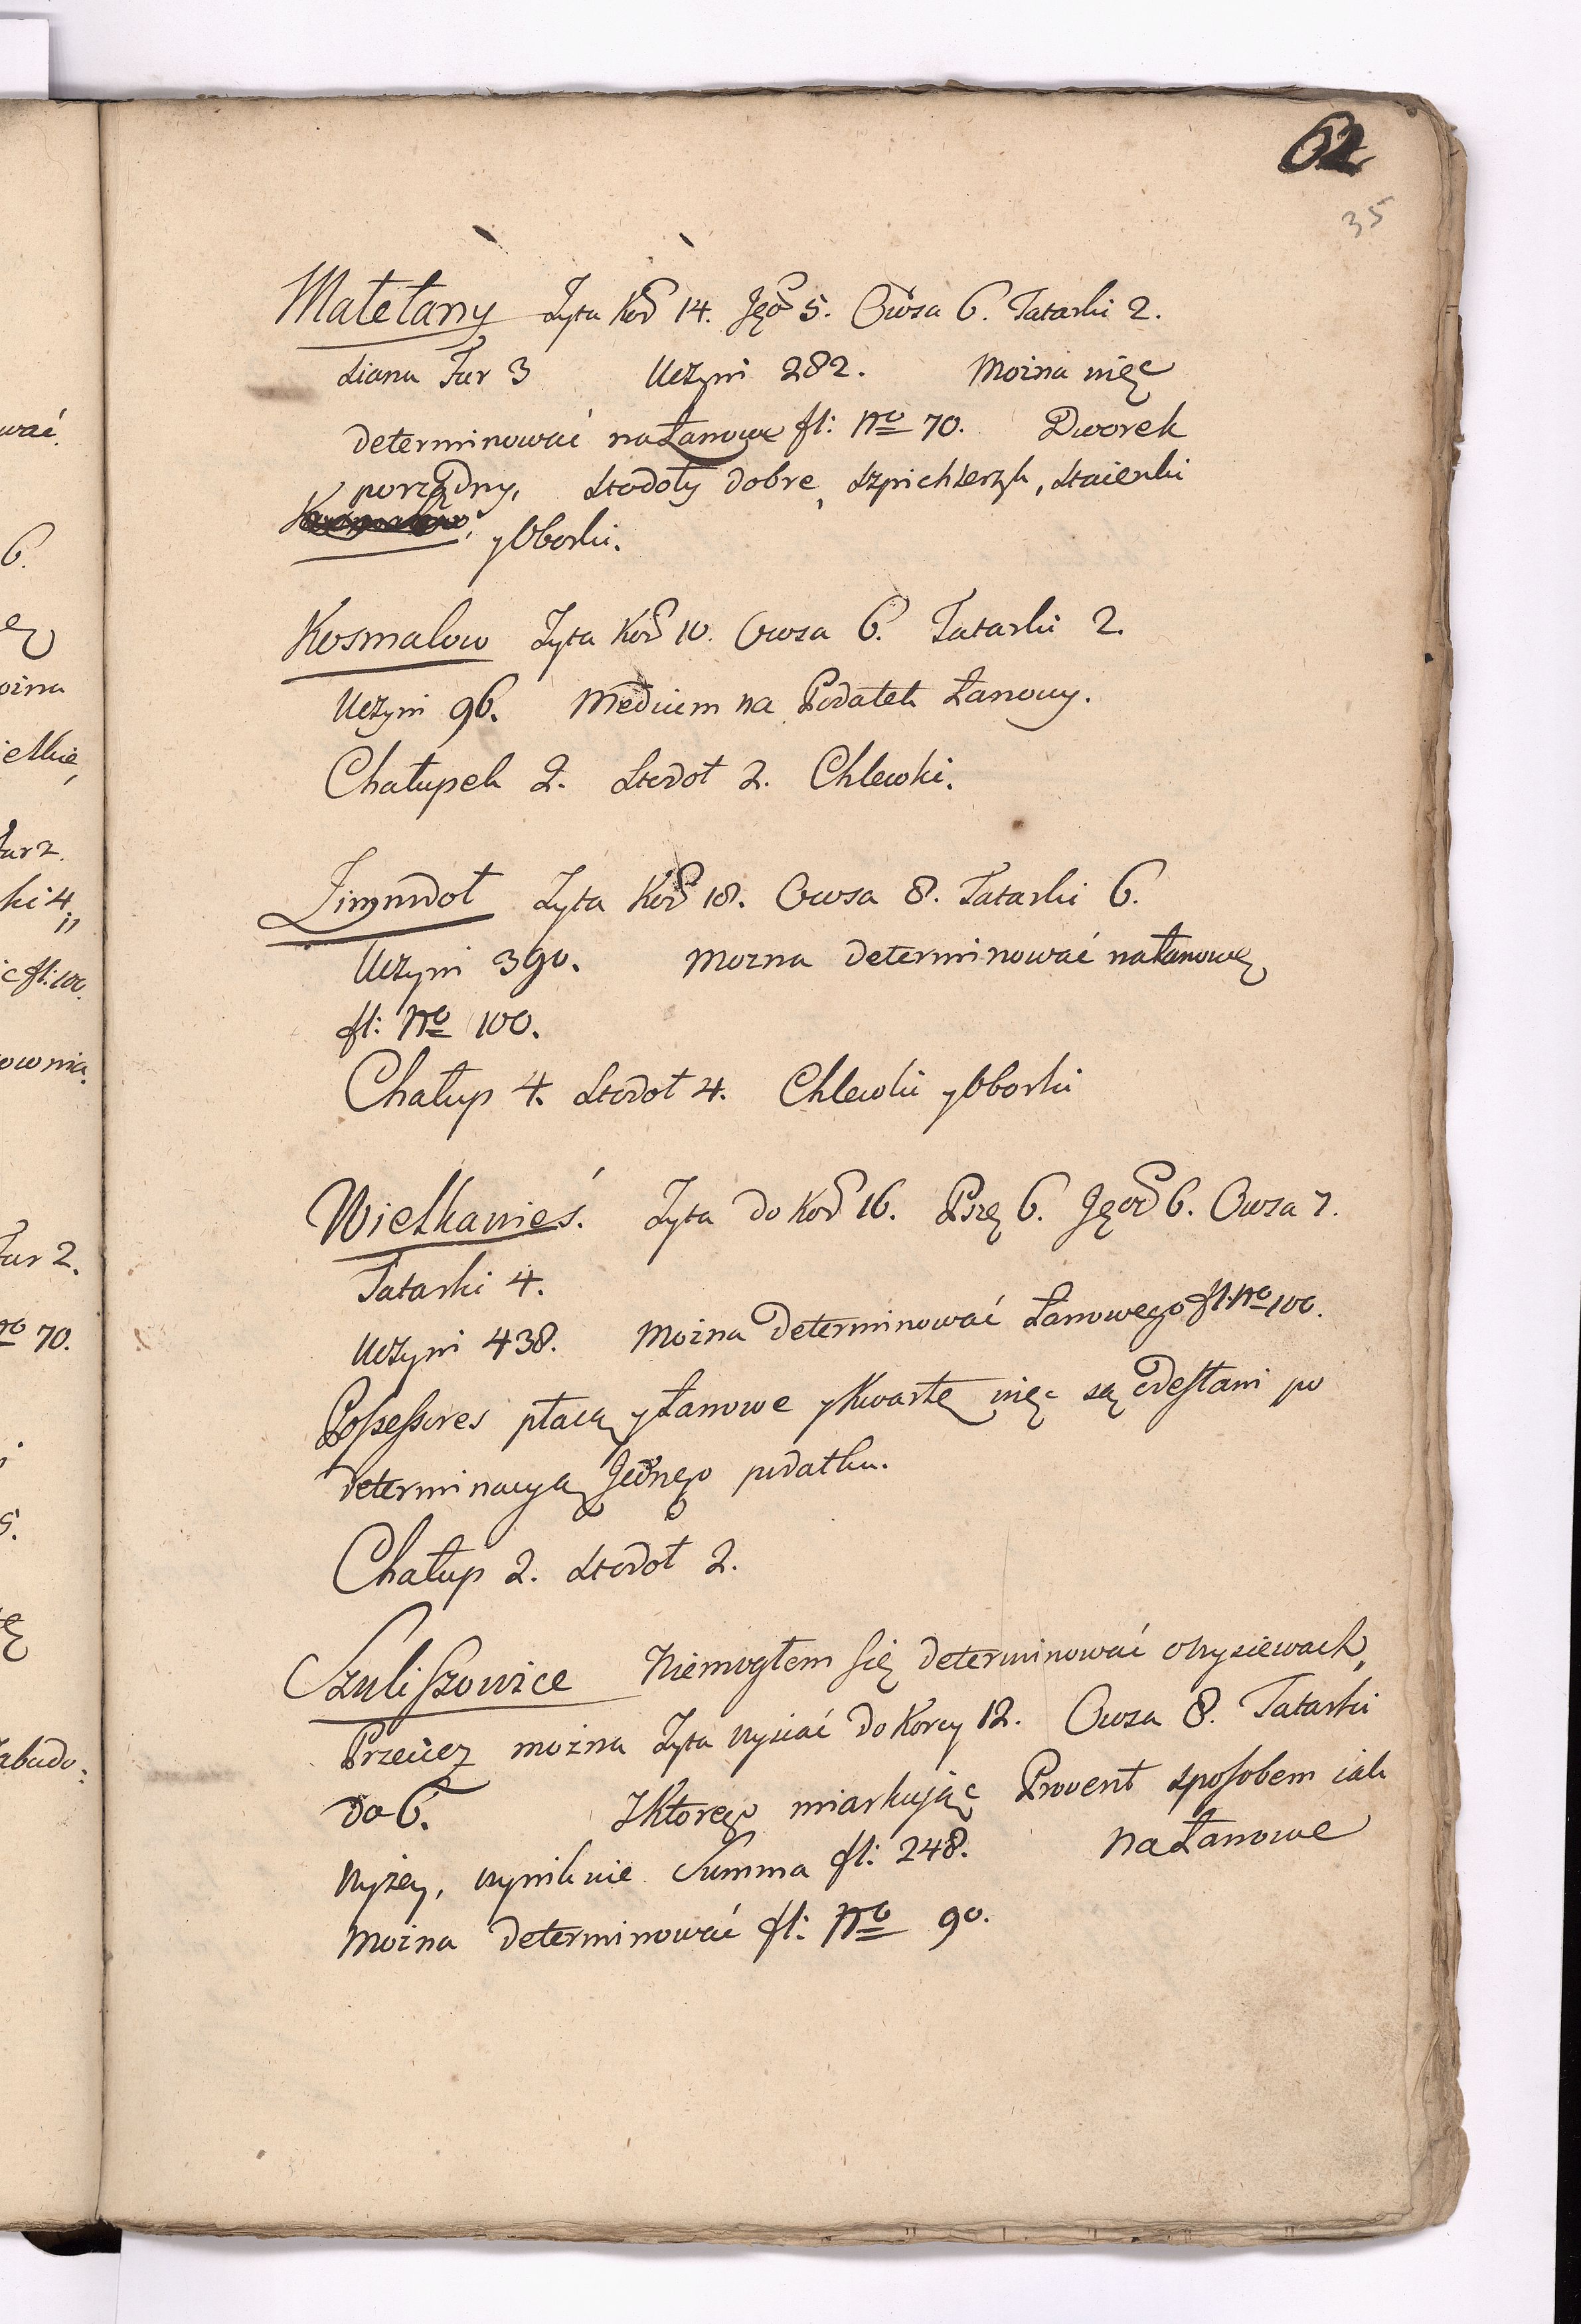 62
35
Małełany Żyta Kor 14. Jęcz 5. Owsa 6. Tatarki 2.
Siana Fur 3 Uczyni 282. Można więc
determinować na Łanowe fl: Nro 70. Dworek
porządny, Stodoły dobre, Szpichlerzyk, Staienki
y Oborki.
Kosmalow Żyta Kor 10. Owsa 6. Tatarki 2.
Uczyni 96. Medium na Podatek Łanowy.
Chałupek 2. Stodoł 2. Chlewki.
Zimnodoł Żyta Kor 18. Owsa 8. Tatarki 6.
Uczyni 390. Mozna determinować na Łanowe
fl: Nro 100.
Chałup 4. Stodoł 4. Chlewki y Oborki
Wielkawieś. Żyta do Kor 16. Pszę 6. Jęcz 6. Owsa 7.
Tatarki 4.
Uczyni 438. Można determinować Łanowego fl. Nro 100.
Possessores płacą y Łanowe y Kwartę więc są odesłani po
determinacyą Jednego podatku.
Chałup 2. Stodoł 2.
Szuliszowice Niemogłem się determinować o wysiewach,
Przeciez można Żyta wysiać do Korcy 12. Owsa 8. Tatarki
do 6. Z Ktorego miarkując Prowent sposobem iak
wyżey, wyniknie Summa fl: 248. na Łanowe
Można determinować fl: Nro 90.